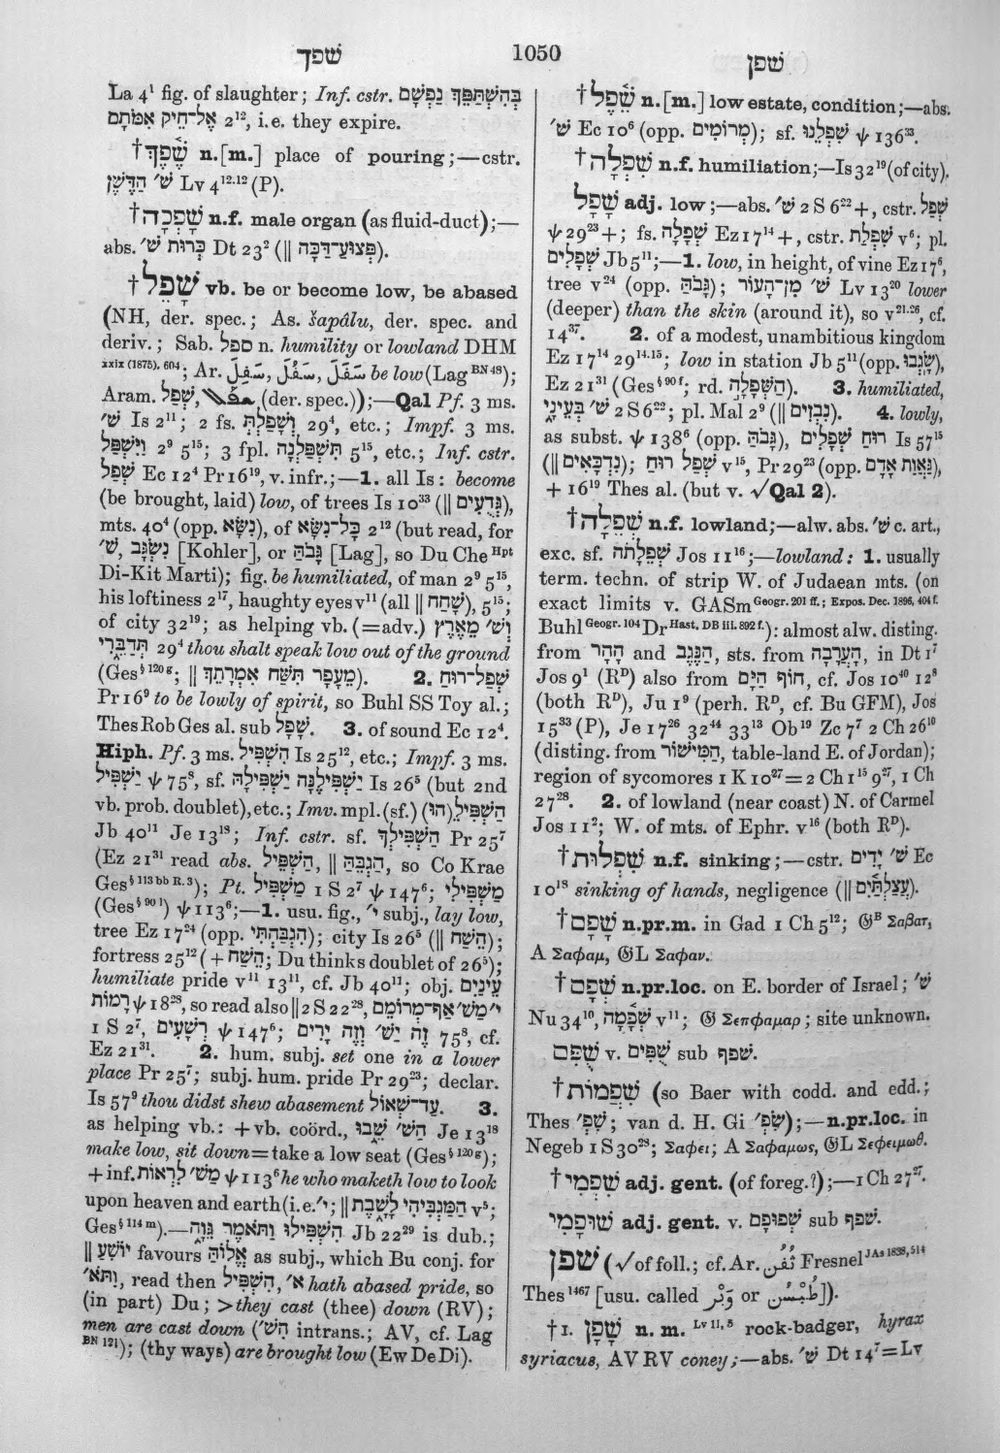 שפך
1050
שפן
La 4¹ fig. of slaughter; Inf. cstr. בְּהִשְׁתַּפֵּךְ נַפְשָׁם
אֶל־חֵיק אִמֹּתָם 2¹², i.e. they expire.
†שֶׁ֫פֶךְ n.[m.] place of pouring;—cstr.
שׁ׳ הַדֶּשֶׁן Lv 4¹²·¹² (P).
†שָׁפְכָה n.f. male organ (as fluid-duct);—
abs. כְּרוּת שׁ׳ Dt 23² (‖ פְּצוּעַ־דַּכָּה).
†שָׁפֵל vb. be or become low, be abased
(NH, der. spec.; As. šapâlu, der. spec. and
deriv.; Sab. ספל n. humility or lowland DHM
xxix (1875), 604; Ar. سَفَلَ, سَفُلَ, سَفِلَ be low (Lag BN 48);
Aram. שְׁפַל, (der. spec.));—Qal Pf. 3 ms.
שׁ׳ Is 2¹¹; 2 fs. וְשָׁפַלְתְּ 29⁴, etc.; Impf. 3 ms.
וַיִּשְׁפַּל 2⁹ 5¹⁵; 3 fpl. תִּשְׁפַּלְנָה 5¹⁵, etc.; Inf. cstr.
שְׁפַל Ec 12⁴ Pr 16¹⁹, v. infr.;—1. all Is: become
(be brought, laid) low, of trees Is 10³³ (‖ גְּדֻעִים),
mts. 40⁴ (opp. נִשָּׂא), of כָּל־נִשָּׂא 2¹² (but read, for
שׁ׳, נִשְׂגָּב [Kohler], or גָּבֹהַּ [Lag], so Du Che Hpt
Di-Kit Marti); fig. be humiliated, of man 2⁹ 5¹⁵,
his loftiness 2¹⁷, haughty eyes v¹¹ (all ‖ שָׁחַח), 5¹⁵;
of city 32¹⁹; as helping vb. (=adv.) וְשׁ׳ מֵאֶרֶץ
תְּדַבֵּרִי 29⁴ thou shalt speak low out of the ground
(Ges§120g; ‖ מֵעָפָר תִּשַּׁח אִמְרָתֵךְ). 2. שְׁפַל־רוּחַ
Pr 16⁹ to be lowly of spirit, so Buhl SS Toy al.;
Thes Rob Ges al. sub שָׁפָל. 3. of sound Ec 12⁴.
Hiph. Pf. 3 ms. הִשְׁפִּיל Is 25¹², etc.; Impf. 3 ms.
יַשְׁפִּיל ψ 75⁸, sf. יַשְׁפִּילֶנָּה יַשְׁפִּילָהּ Is 26⁵ (but 2nd
vb. prob. doublet), etc.; Imv. mpl. (sf.) הַשְׁפִּילֵ(הוּ)
Jb 40¹¹ Je 13¹⁸; Inf. cstr. sf. הַשְׁפִּילְךָ Pr 25⁷
(Ez 21³¹ read abs. הַשְׁפִּיל, ‖ הַגְבֵּהַּ, so Co Krae
Ges§113bb R.3); Pt. מַשְׁפִּיל 1 S 2⁷ ψ 147⁶; מַשְׁפִּילִי
(Ges§90l) ψ 113⁶;—1. usu. fig., י׳ subj., lay low,
tree Ez 17²⁴ (opp. הִגְבַּהְתִּי); city Is 26⁵ (‖ הֵשַׁח);
fortress 25¹² (+ הֵשַׁח; Du thinks doublet of 26⁵);
humiliate pride v¹¹ 13¹¹, cf. Jb 40¹¹; obj. עֵינַיִם
רָמוֹת ψ 18²⁸, so read also ‖ 2 S 22²⁸, י׳ מַשׁ׳ אַף־מְרוֹמֵם
1 S 2⁷, רְשָׁעִים ψ 147⁶; זֶה יַשׁ׳ וְזֶה יָרִים 75⁸, cf.
Ez 21³¹. 2. hum. subj. set one in a lower
place Pr 25⁷; subj. hum. pride Pr 29²³; declar.
Is 57⁹ thou didst shew abasement עַד־שְׁאוֹל. 3.
as helping vb.: + vb. coörd., הַשׁ׳ שֵׁבוּ Je 13¹⁸
make low, sit down=take a low seat (Ges§120g);
+ inf. מַשׁ׳ לִרְאוֹת ψ 113⁶ he who maketh low to look
upon heaven and earth (i.e. י׳; ‖ הַמַּגְבִּיהִי לָשָׁבֶת v⁵;
Ges§114m).—הִשְׁפִּילוּ וַתֹּאמֶר גֵּוָה Jb 22²⁹ is dub.;
‖ יוֹשִׁעַ favours אֱלוֹהַּ as subj., which Bu conj. for
וַתֹּא׳, read then הִשְׁפִּיל א׳ hath abased pride, so
(in part) Du; >they cast (thee) down (RV);
men are cast down (הִשׁ׳ intrans.; AV, cf. Lag
BN 121); (thy ways) are brought low (Ew De Di).
†שֵׁ֫פֶל n.[m.] low estate, condition;—abs.
שׁ׳ Ec 10⁶ (opp. מְרוֹמִים); sf. שִׁפְלֵנוּ ψ 136²³.
†שִׁפְלָה n.f. humiliation;—Is 32¹⁹ (of city).
שָׁפָל adj. low;—abs. שׁ׳ 2 S 6²² +, cstr. שְׁפַל
ψ 29²³ +; fs. שְׁפָלָה Ez 17¹⁴ +, cstr. שִׁפְלַת v⁶; pl.
שְׁפָלִים Jb 5¹¹;—1. low, in height, of vine Ez 17⁶,
tree v²⁴ (opp. גָּבֹהַּ); שׁ׳ מִן־הָעוֹר Lv 13²⁰ lower
(deeper) than the skin (around it), so v²¹·²⁶, cf.
14³⁷. 2. of a modest, unambitious kingdom
Ez 17¹⁴ 29¹⁴·¹⁵; low in station Jb 5¹¹ (opp. שָׂגְבוּ),
Ez 21³¹ (Ges§90f; rd. הַשְּׁפָלָה). 3. humiliated,
שׁ׳ בְּעֵינָי 2 S 6²²; pl. Mal 2⁹ (‖ נִבְזִים). 4. lowly,
as subst. ψ 138⁶ (opp. גָּבֹהַּ), רוּחַ שְׁפָלִים Is 57¹⁵
(‖ נִדְכָּאִים); שְׁפַל רוּחַ v¹⁵, Pr 29²³ (opp. גַּאֲוַת אָדָם),
+ 16¹⁹ Thes al. (but v. √Qal 2).
†שְׁפֵלָה n.f. lowland;—alw. abs. שׁ׳ c. art.,
exc. sf. שְׁפֵלָתֹה Jos 11¹⁶;—lowland: 1. usually
term. techn. of strip W. of Judaean mts. (on
exact limits v. GASm Geogr. 201 ff.; Expos. Dec. 1896, 404 f.
Buhl Geogr. 104 Dr Hast. DB iii. 892 f.): almost alw. disting.
from הָהָר and הַנֶּגֶב, sts. from הָעֲרָבָה, in Dt 1⁷
Jos 9¹ (Rᴰ) also from חוֹף הַיָּם, cf. Jos 10⁴⁰ 12⁸
(both Rᴰ), Ju 1⁹ (perh. Rᴰ, cf. Bu GFM), Jos
15³³ (P), Je 17²⁶ 32⁴⁴ 33¹³ Ob¹⁹ Zc 7⁷ 2 Ch 26¹⁰
(disting. from הַמִּישׁוֹר, table-land E. of Jordan);
region of sycomores 1 K 10²⁷=2 Ch 1¹⁵ 9²⁷, 1 Ch
27²⁸. 2. of lowland (near coast) N. of Carmel
Jos 11²; W. of mts. of Ephr. v¹⁶ (both Rᴰ).
†שִׁפְלוּת n.f. sinking;—cstr. שׁ׳ יָדַיִם Ec
10¹⁸ sinking of hands, negligence (‖ עֲצַלְתַּ֫יִם).
†שָׁפָם n.pr.m. in Gad 1 Ch 5¹²; 𝔊ᴮ Σαβατ,
A Σαφαμ, 𝔊L Σαφαν.
†שְׁפָם n.pr.loc. on E. border of Israel; שׁ׳
Nu 34¹⁰, שְׁפָמָה v¹¹; 𝔊 Σεπφαμαρ; site unknown.
שֻׁפִּם v. שֻׁפִּים sub שפף.
†שִׂפְמוֹת (so Baer with codd. and edd.;
Thes שִׁפְ׳; van d. H. Gi שִׂפְ׳);—n.pr.loc. in
Negeb 1 S 30²⁸; Σαφει; A Σαφαμως, 𝔊L Σεφειμωθ.
†שִׁפְמִי adj. gent. (of foreg.?);—1 Ch 27²⁷.
שׁוּפָמִי adj. gent. v. שְׁפוּפָם sub שפף.
שׁפן (√ of foll.; cf. Ar. ثُفَن Fresnel JAs 1838, 514
Thes 1467 [usu. called وَبْر or طُبْسُن]).
†I. שָׁפָן n. m. Lv 11, 5 rock-badger, hyrax
syriacus, AV RV coney;—abs. שׁ׳ Dt 14⁷=Lv